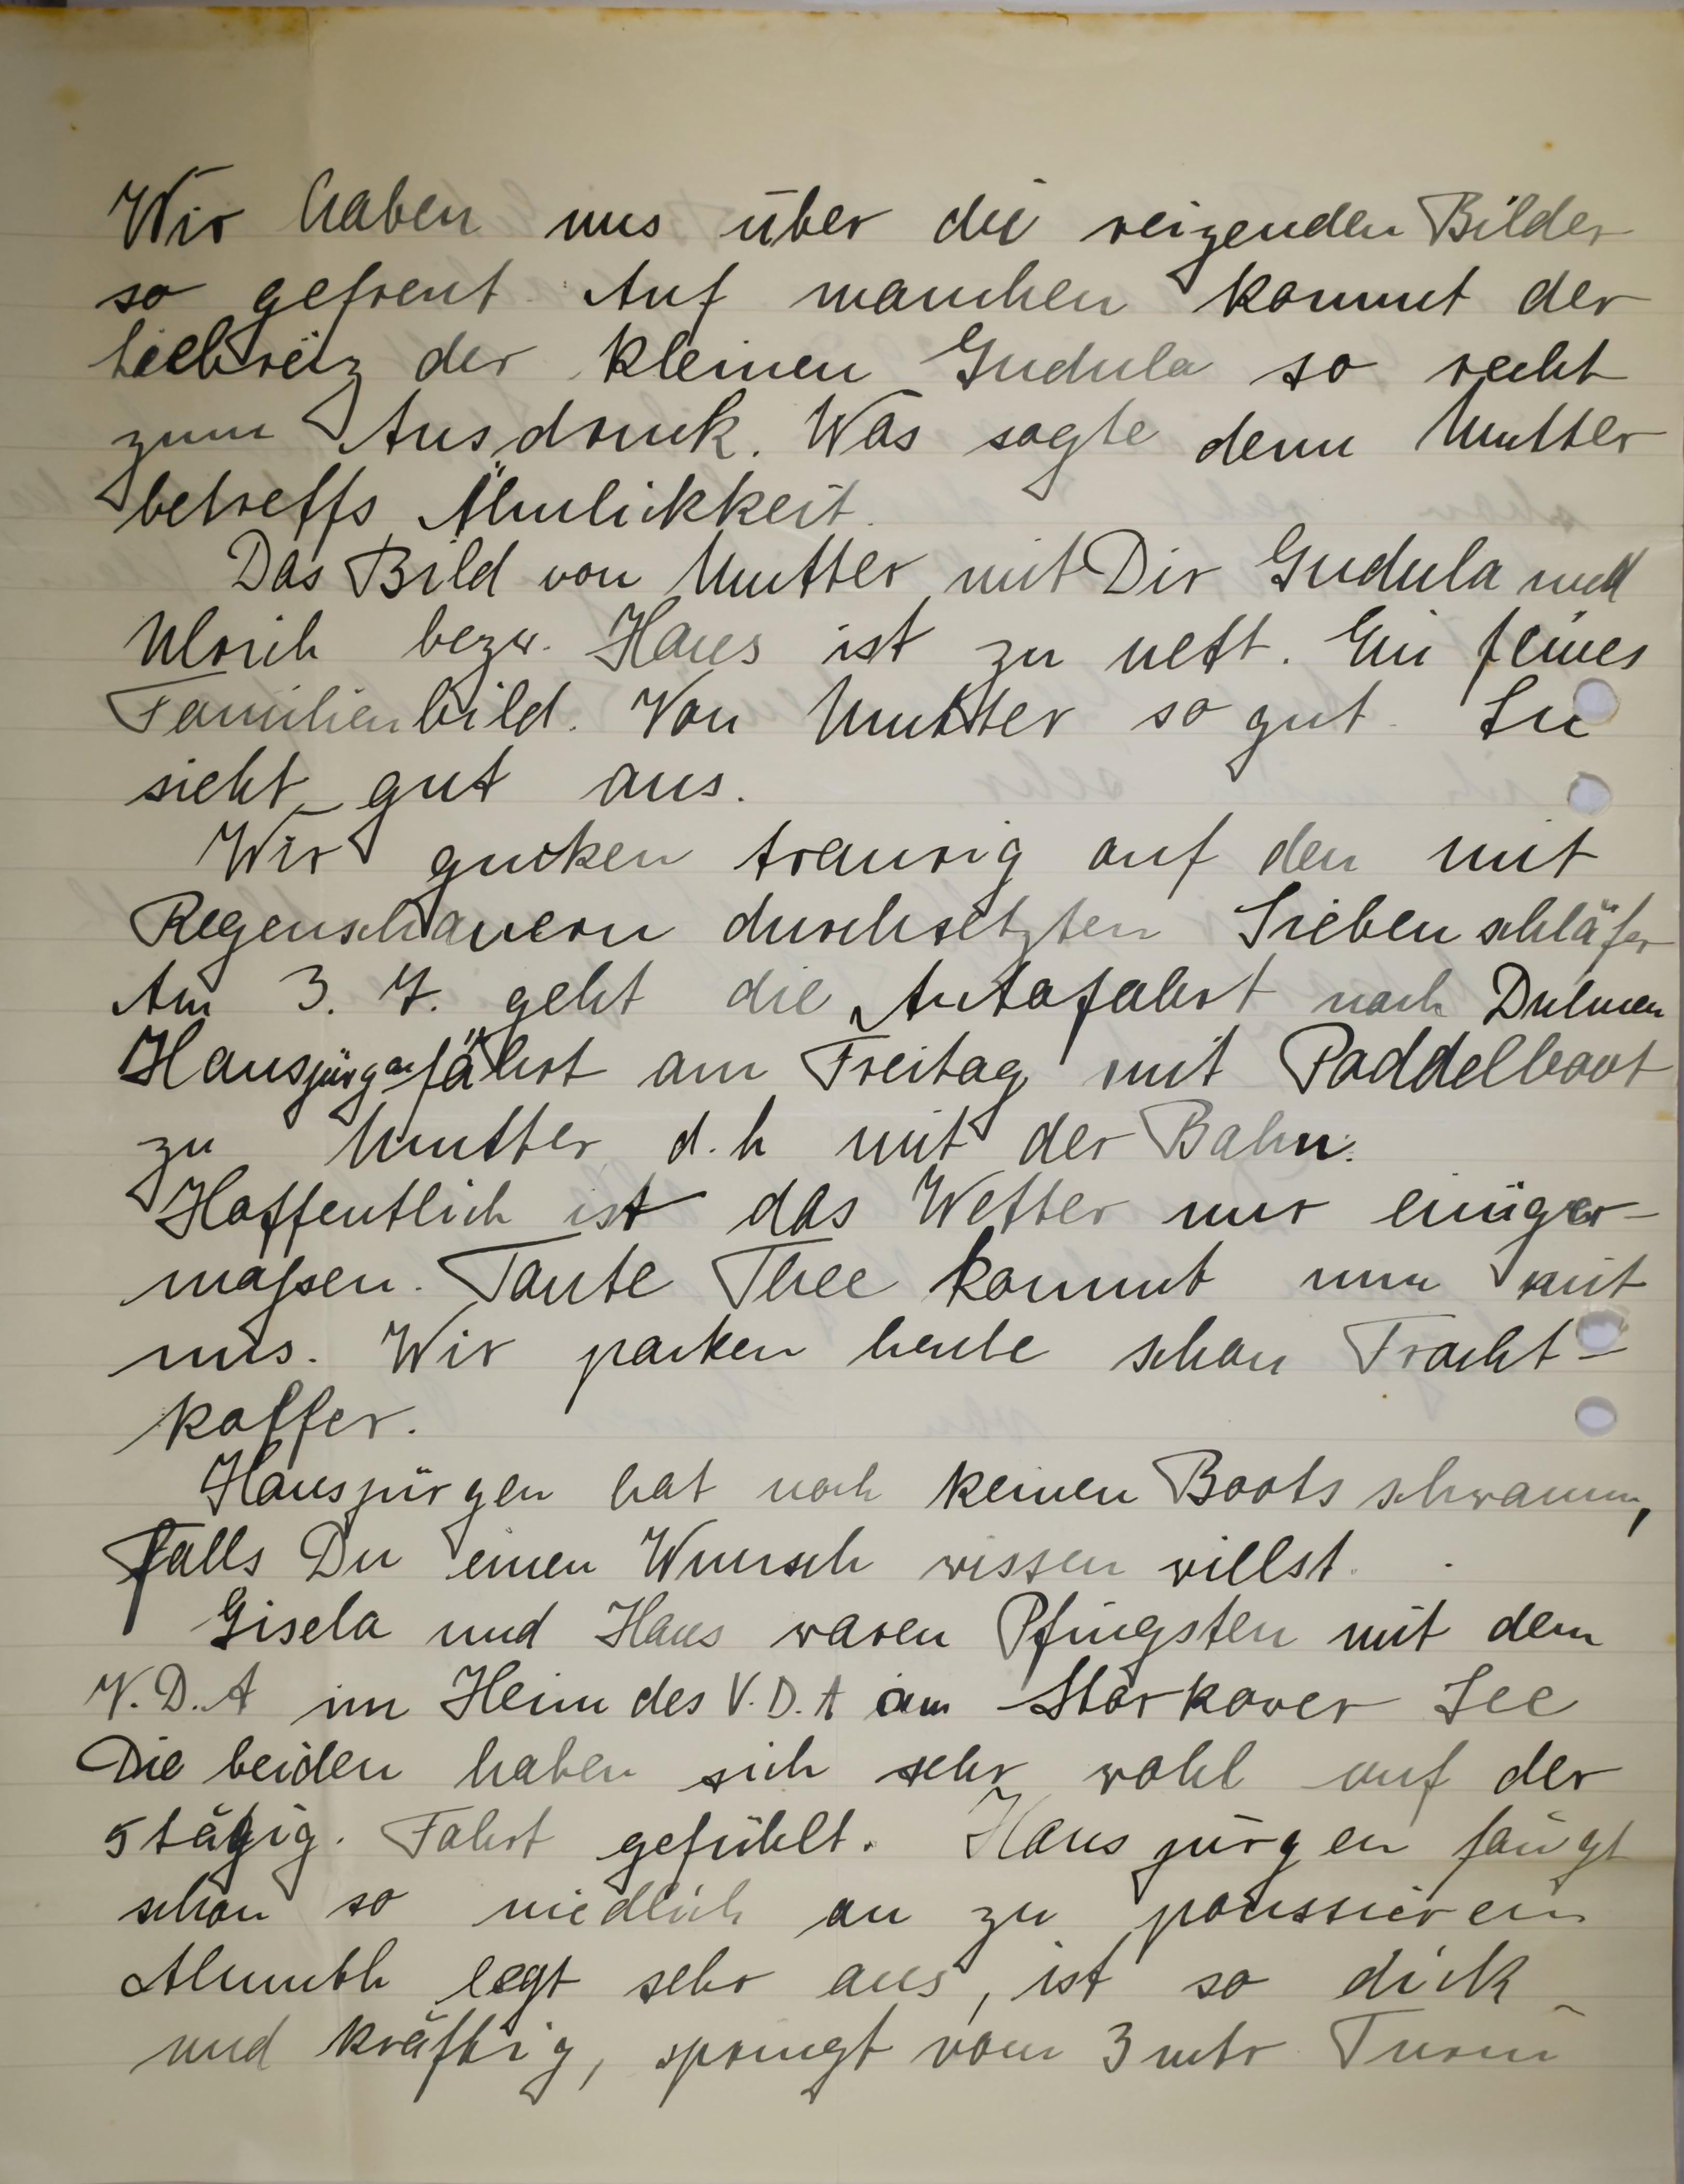 Wir haben uns über die reizenden Bilder
so gefreut. Auf manchen kommt der
Liebreiz der kleinen Gudula so recht
zum Ausdruck. Was sagte denn Mutter
betreffs Ähnlichkeit.
Das Bild von Mutter mit Dir Gudula und
Ulrich bezw. Hans ist zu nett. Ein feines
Familienbild. Von Mutter so gut. Sie
sieht gut aus.
Wir gucken traurig auf den mit
Regenschauern durchsetzten Siebenschläfer
Am 3. 7. geht die Autofahrt nach Dülmen
Hansjürgen fährt am Freitag mit Paddelboot
zu Mutter d.h mit der Bahn.
Hoffentlich ist das Wetter nur einiger-
maßen. Tante Thee kommt nun mit
uns. Wir packen heute schon Fracht-
koffer.
Hansjürgen hat noch keinen Bootsschwamm,
falls Du einen Wunsch wissen willst.
Gisela und Hans waren Pfingsten mit dem
V.D.A im Heim des V.D.A am Storkower See
Die beiden haben sich sehr wohl auf der
5 tägig. Fahrt gefühlt. Hansjürgen fängt
schon so niedlich an zu poussieren
Almuth legt sehr aus, ist so dick
und kräftig, springt vom 3 mtr Turm